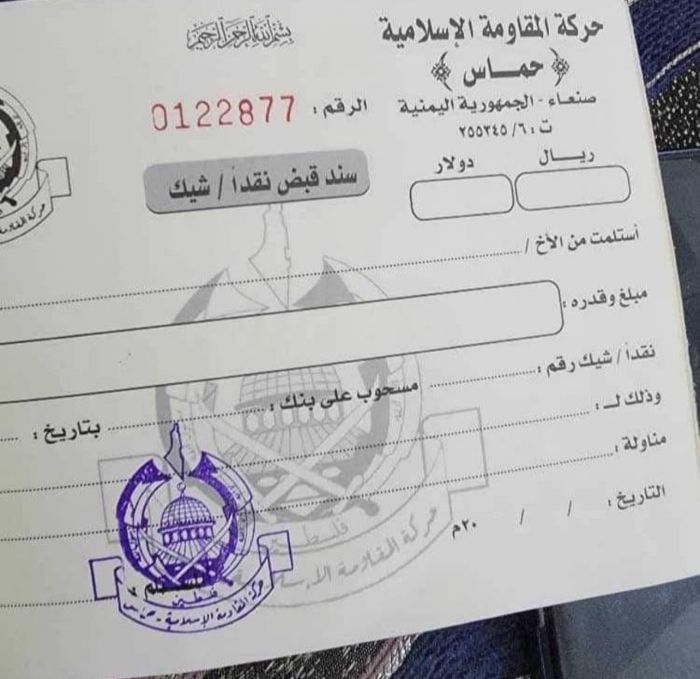 بسم الله الرحمن الرحيم
حركة المقاومة الإسلامية
﴿ حمـــاس ﴾
صنعاء - الجمهورية اليمنية
ت : ٦ / ٢٥٥٣٤٥
الرقم : 0122877
سند قبض نقداً / شيك
ريـــال
دولار
أستلمت من الأخ /
مبلغ وقدره :
نقداً / شيك رقم : مسحوب على بنك : بتاريخ :
وذلك لـــ :
مناولة :
التاريخ : / / ٢٠م
فلسطين
حركة المقاومة الإسلا
فلسطين
حركة المقاومة الإسلامية - حماس
حركة المقا